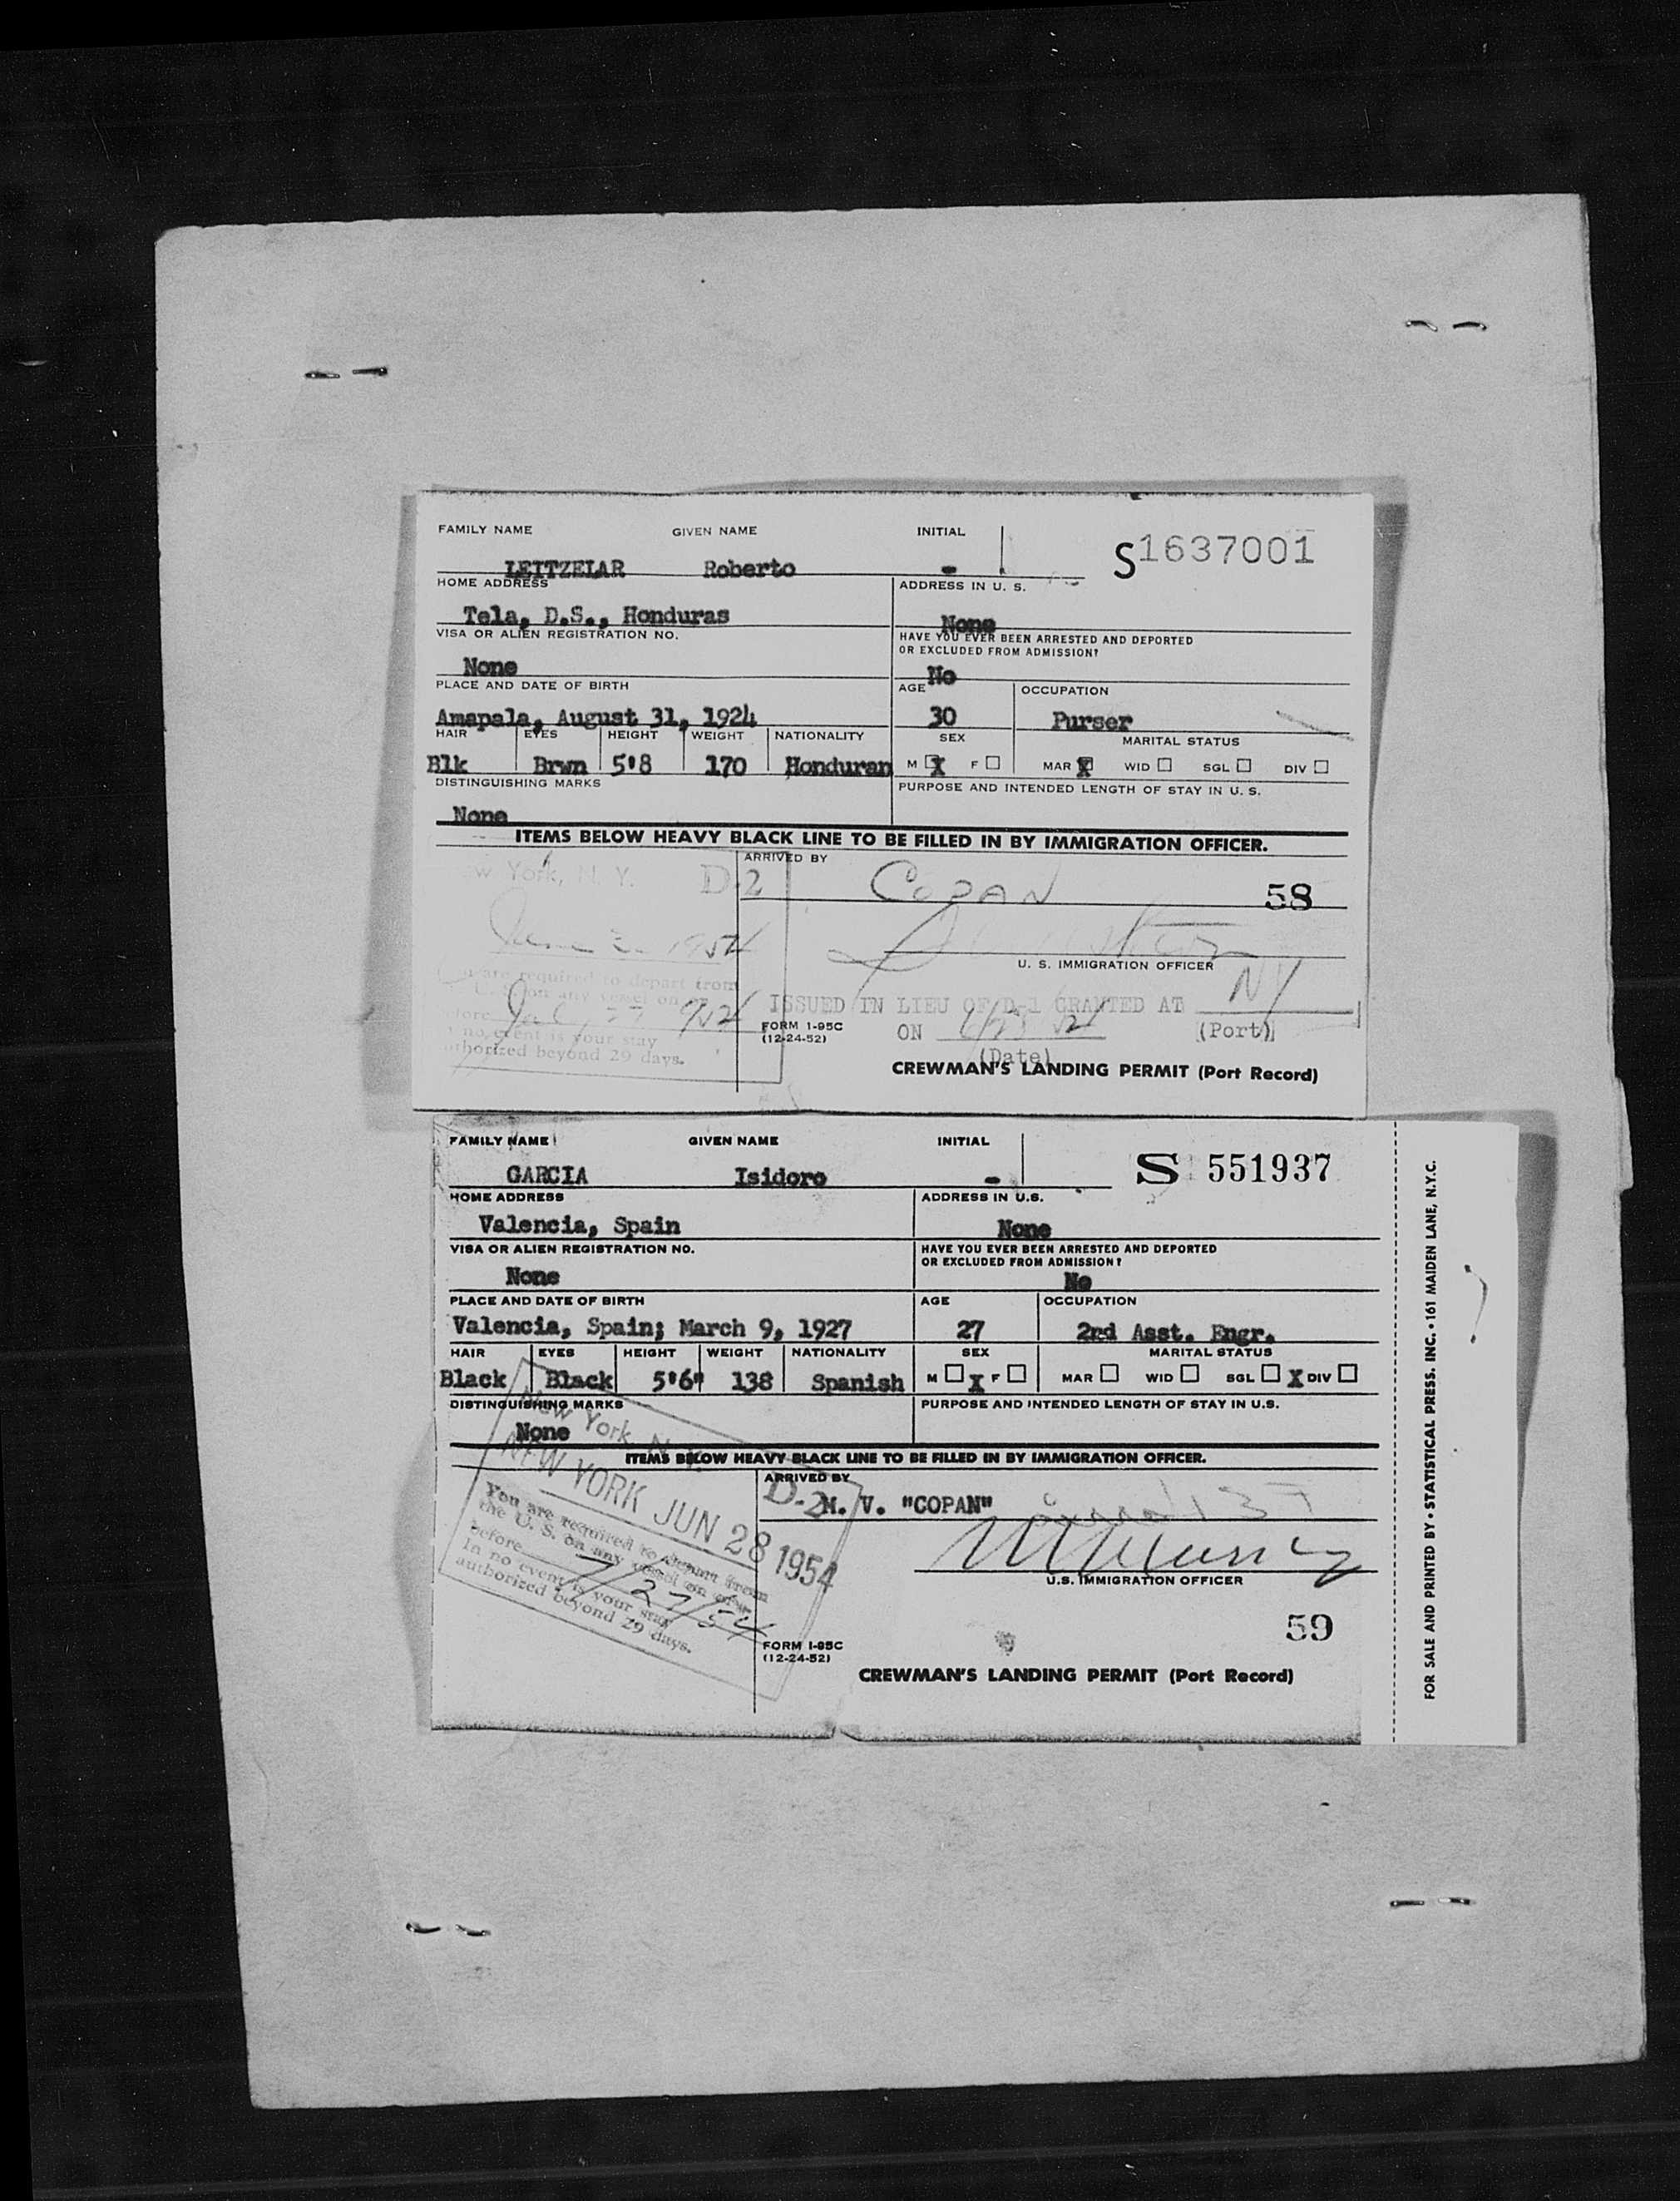 FAMILY NAME GIVEN NAME INITIAL
S1637001
LEITZELAR Roberto -
HOME ADDRESS ADDRESS IN U. S.
Tela, D.S., Honduras None
VISA OR ALIEN REGISTRATION NO. HAVE YOU EVER BEEN ARRESTED AND DEPORTED
OR EXCLUDED FROM ADMISSION?
None No
PLACE AND DATE OF BIRTH AGE OCCUPATION
Amapala, August 31, 1924 30 Purser
HAIR EYES HEIGHT WEIGHT NATIONALITY SEX MARITAL STATUS
Blk Brwn 5'8 170 Honduran M X F MAR X WID SGL DIV
DISTINGUISHING MARKS PURPOSE AND INTENDED LENGTH OF STAY IN U. S.
None
ITEMS BELOW HEAVY BLACK LINE TO BE FILLED IN BY IMMIGRATION OFFICER.
ARRIVED BY
York, N. Y. D-2 COPAN 58
1954
U. S. IMMIGRATION OFFICER
are required to depart from
on any vessel on or
ISSUED IN LIEU OF D-1 GRANTED AT NY
FORM 1-95C ON (Port)
no event is your stay (12-24-52)
authorized beyond 29 days. (Date)
CREWMAN'S LANDING PERMIT (Port Record)
FAMILY NAME GIVEN NAME INITIAL
S 551937
GARCIA Isidoro -
HOME ADDRESS ADDRESS IN U.S.
Valencia, Spain None
VISA OR ALIEN REGISTRATION NO. HAVE YOU EVER BEEN ARRESTED AND DEPORTED
OR EXCLUDED FROM ADMISSION?
None No
PLACE AND DATE OF BIRTH AGE OCCUPATION
Valencia, Spain; March 9, 1927 27 2nd Asst. Engr.
HAIR EYES HEIGHT WEIGHT NATIONALITY SEX MARITAL STATUS
Black Black 5'6" 138 Spanish M X F MAR WID SGL X DIV
DISTINGUISHING MARKS PURPOSE AND INTENDED LENGTH OF STAY IN U.S.
None
New York, N.
ITEMS BELOW HEAVY BLACK LINE TO BE FILLED IN BY IMMIGRATION OFFICER.
NEW YORK JUN 28 1954
ARRIVED BY
D-2 M. V. "COPAN"
You are required to depart from
the U. S. on any vessel on or
before 7/27/54
In no event is your stay
authorized beyond 29 days.
U.S. IMMIGRATION OFFICER
59
FORM I-95C
(12-24-52)
CREWMAN'S LANDING PERMIT (Port Record)
FOR SALE AND PRINTED BY • STATISTICAL PRESS. INC. • 161 MAIDEN LANE, N.Y.C.